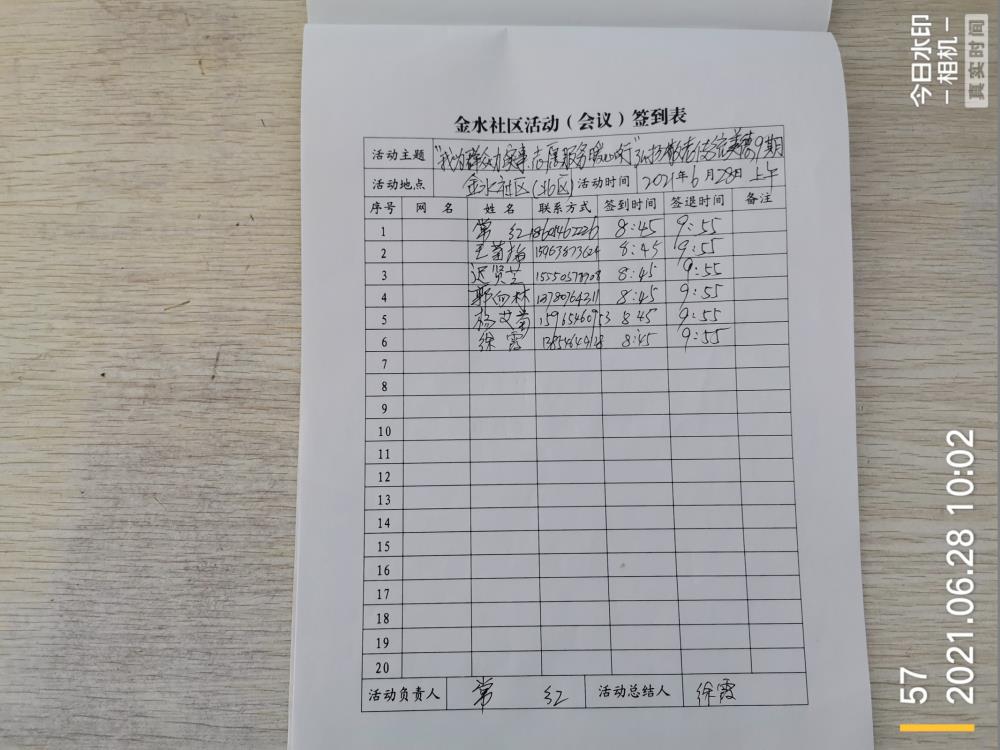 金水社区活动（会议）签到表
活动主题 "我为群众办实事志愿服务暖心行"弘扬敬老传统美德9期
活动地点 金水社区(北区) 活动时间 2021年6月28日上午
序号 网名 姓名 联系方式 签到时间 签退时间 备注
1 常红 18601462226 8:45 9:55
2 王苗梅 15963873624 8:45 9:55
3 迟贤芝 15550578708 8:45 9:55
4 郭向林 13780764211 8:45 9:55
5 杨艾菊 15965460953 8:45 9:55
6 徐霞 13854649128 8:45 9:55
7
8
9
10
11
12
13
14
15
16
17
18
19
20
活动负责人 常红 活动总结人 徐霞
今日水印
-相机-
真实时间
57
2021.06.28 10:02